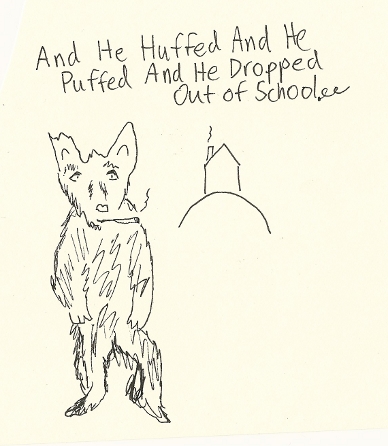 And He Huffed And He
Puffed And He Dropped
Out of School..